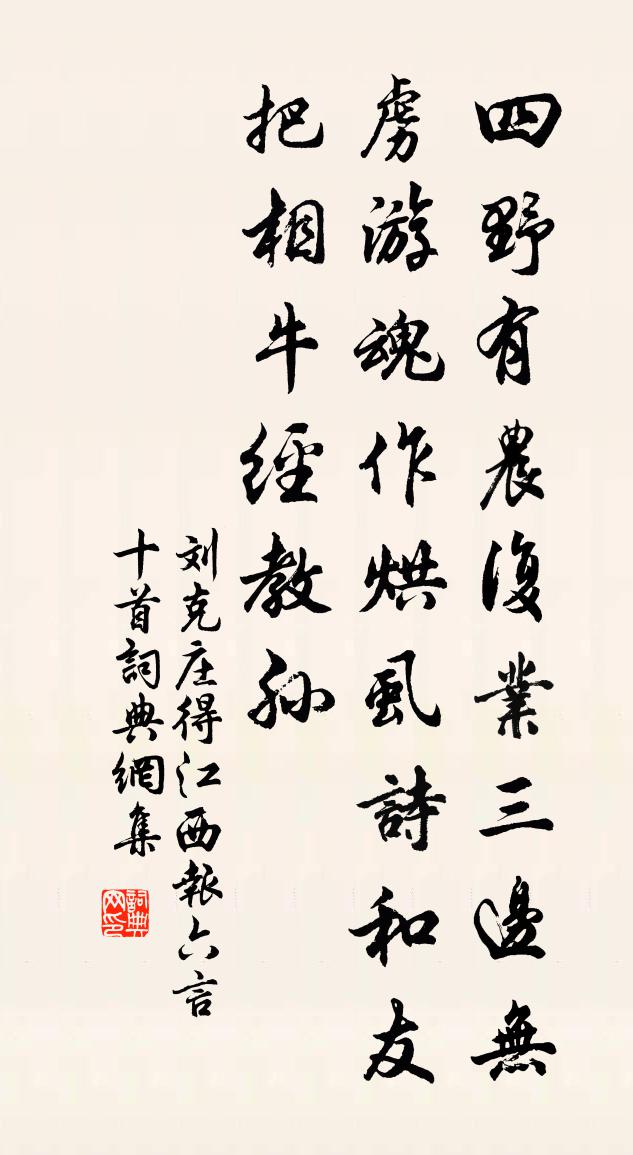 四野有農復業三邊無
虜游魂作烘虱詩和友
把相牛經教孙
刘克庄得江西報六言
十首詞典網集
詞典网印